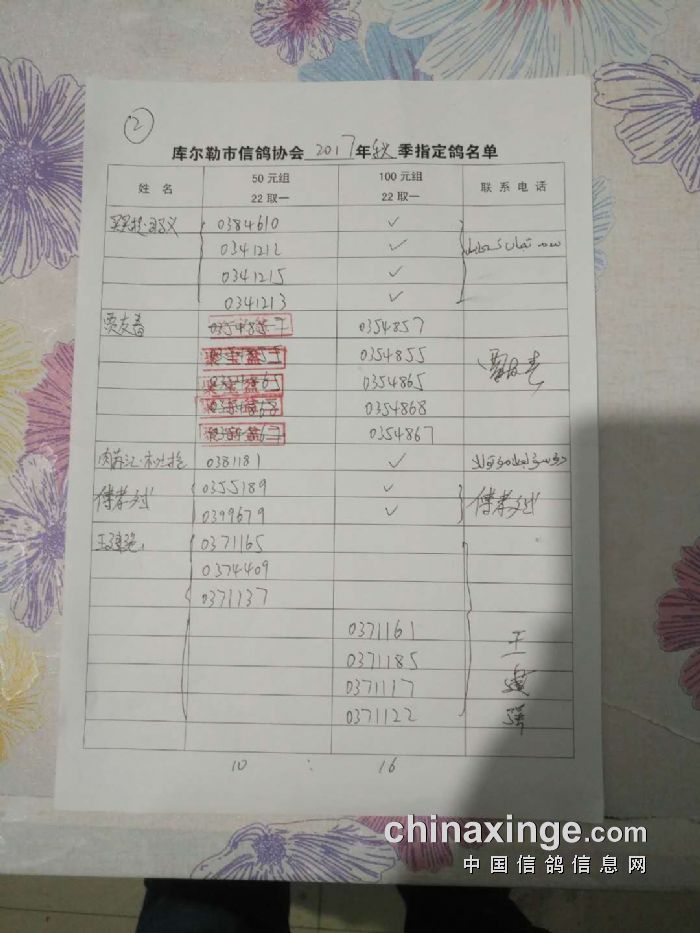 ②
库尔勒市信鸽协会 2017 年 秋 季指定鸽名单
姓 名 50元组 22取一 100元组 22取一 联系电话
0384610 ✓
0341212 ✓
0341215 ✓
0341213 ✓
贾友春 0354857
0354855
0354865
0354868
0354867
0381181 ✓
傅孝斌 0355189 ✓ 傅孝斌
0399679 ✓
王建强 0371165
0374409
0371137
0371161 王
0371185
0371117 建
0371122 强
10 : 16
chinaxinge.com
中国信鸽信息网